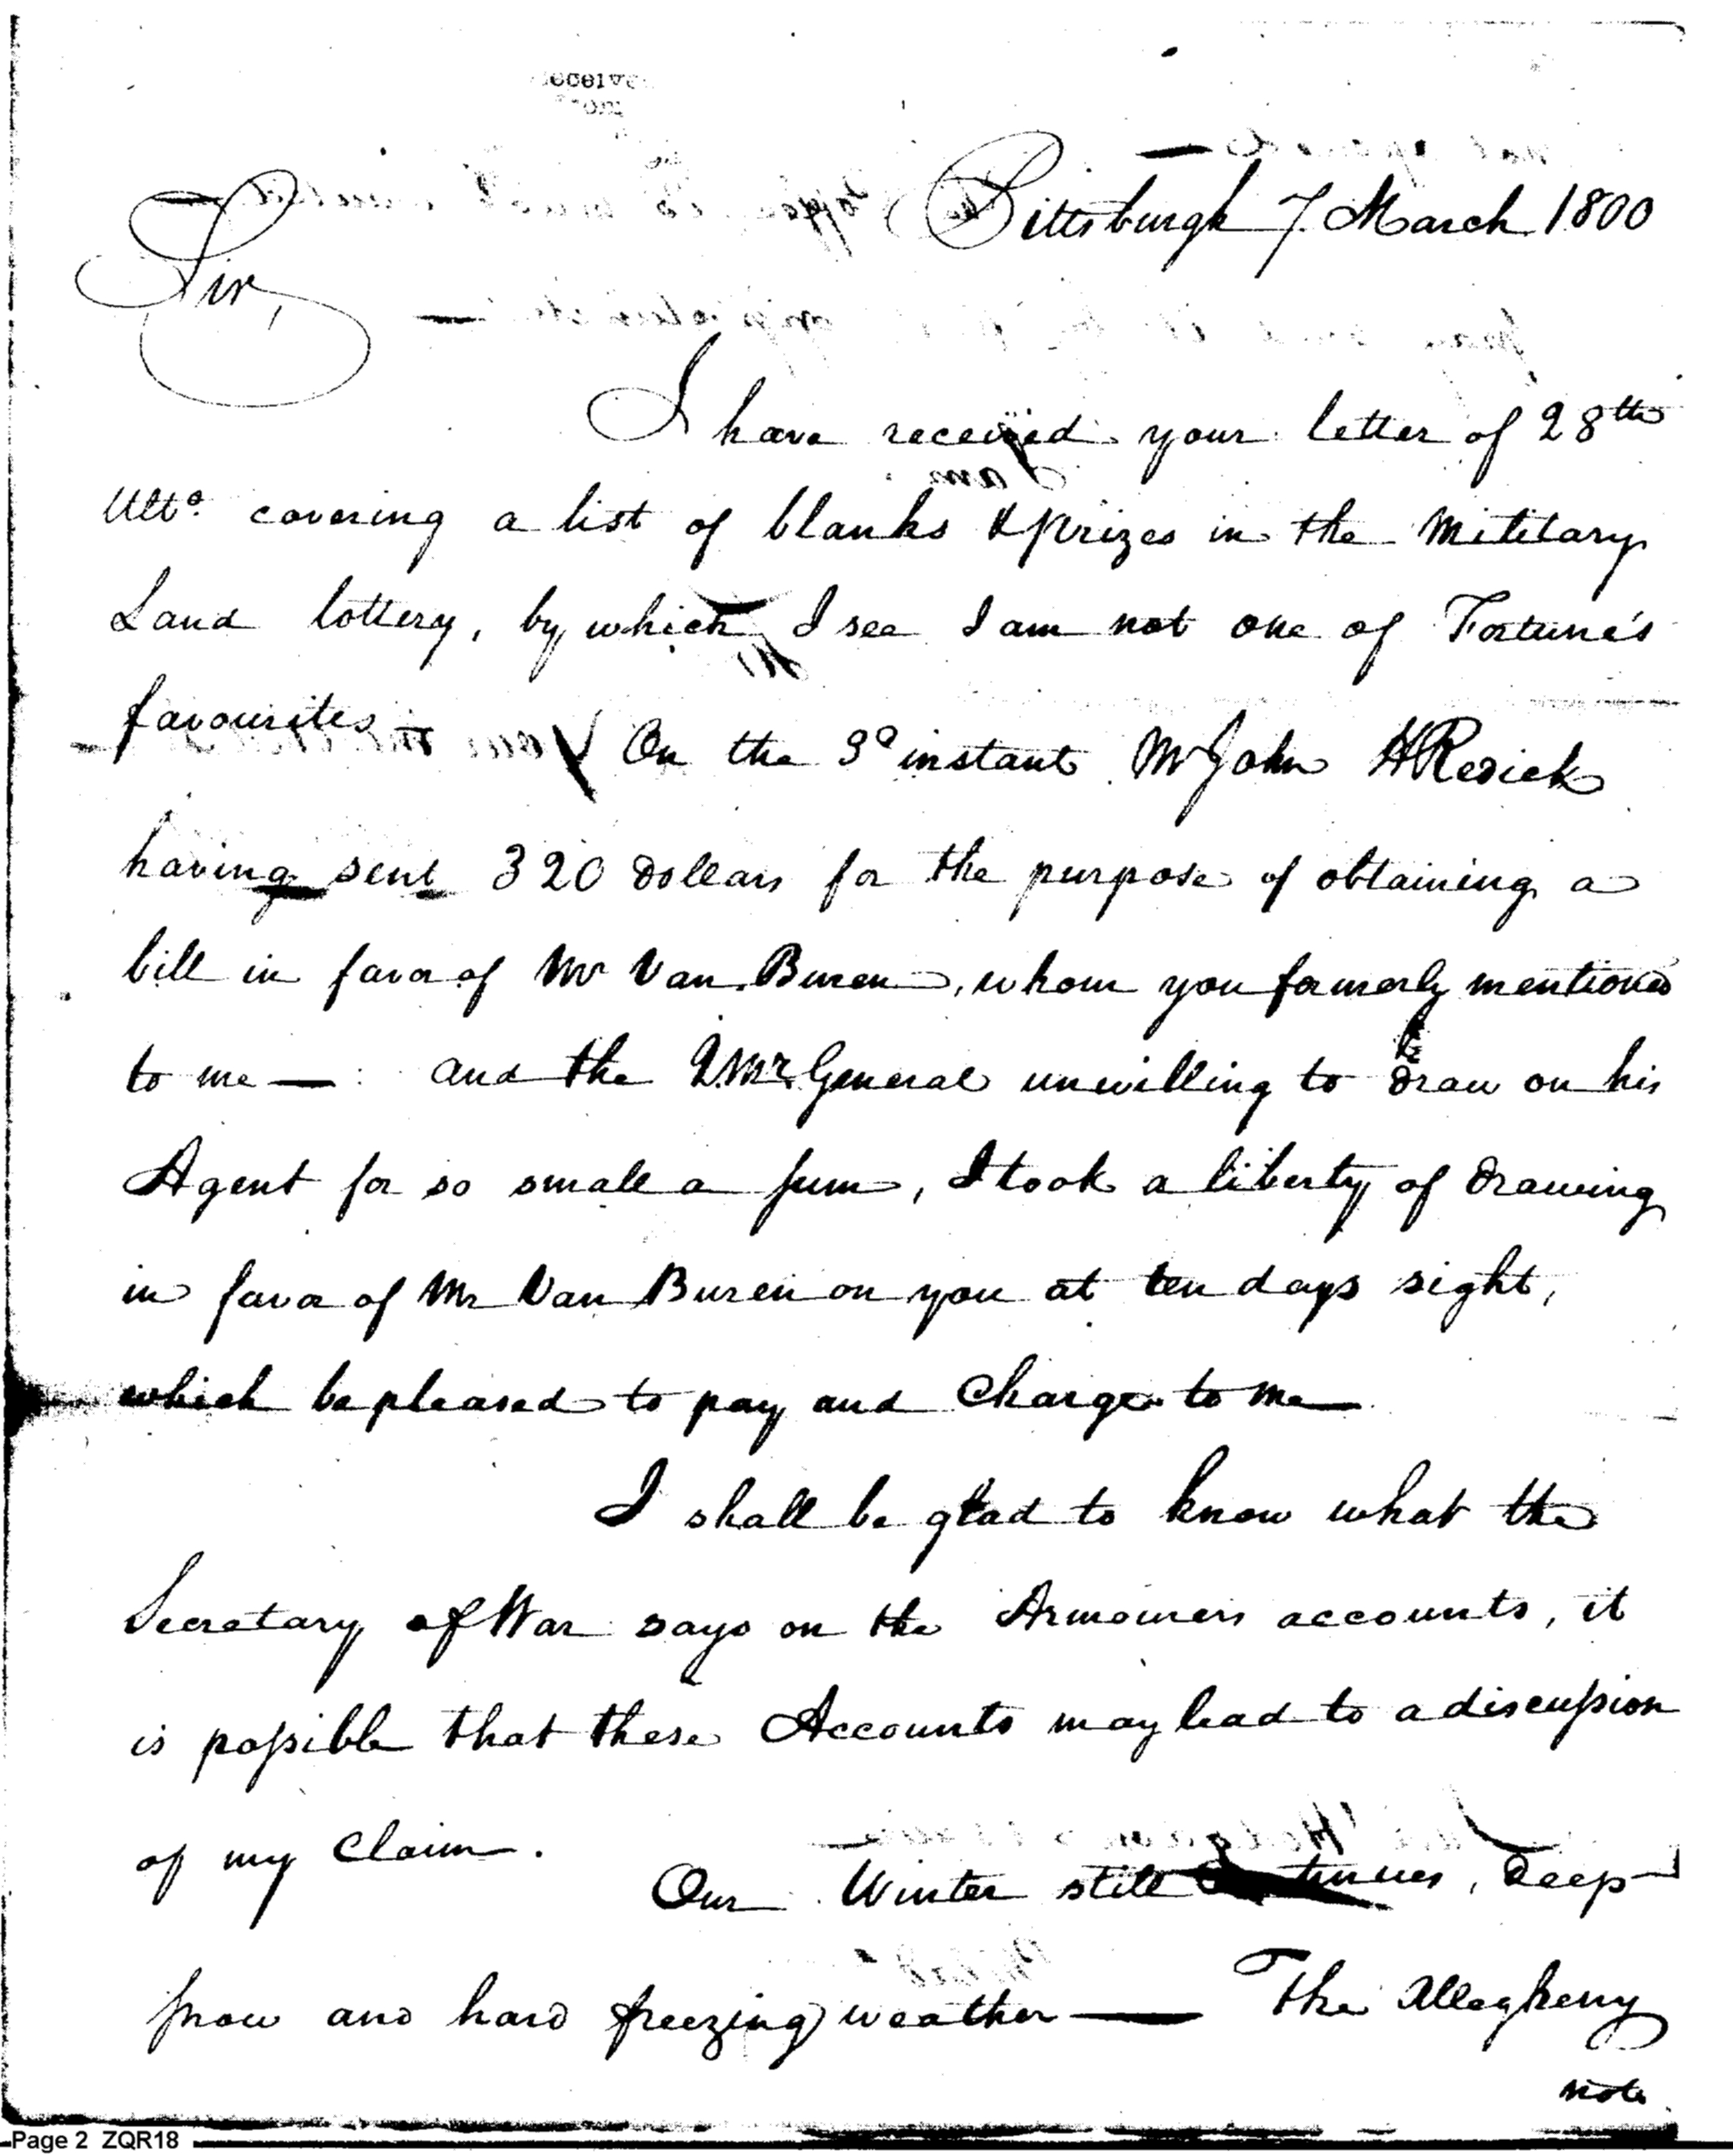 Pittsburgh 7 March 1800
Sir,
I have received your letter of 28th
Ulto. covering a list of blanks & prizes in the Military
Land lottery, by which I see I am not one of Fortune's
favourites —
On the 3d instant Mr John H Resick
having sent 320 Dollars for the purpose of obtaining a
bill in favor of Mr Van Buren, whom you formerly mentioned
to me — and the Q Mr. General unwilling to draw on his
Agent for so small a sum, I took a liberty of drawing
in favor of Mr Van Buren on you at ten days sight,
which be pleased to pay and Charge to me —
I shall be glad to know what the
Secretary of War says on the Armourers accounts, it
is possible that these Accounts may lead to a discussion
of my Claim.
Our Winter still continues, deep
snow and hard freezing weather — The Allegheny
note
Page 2 ZQR18